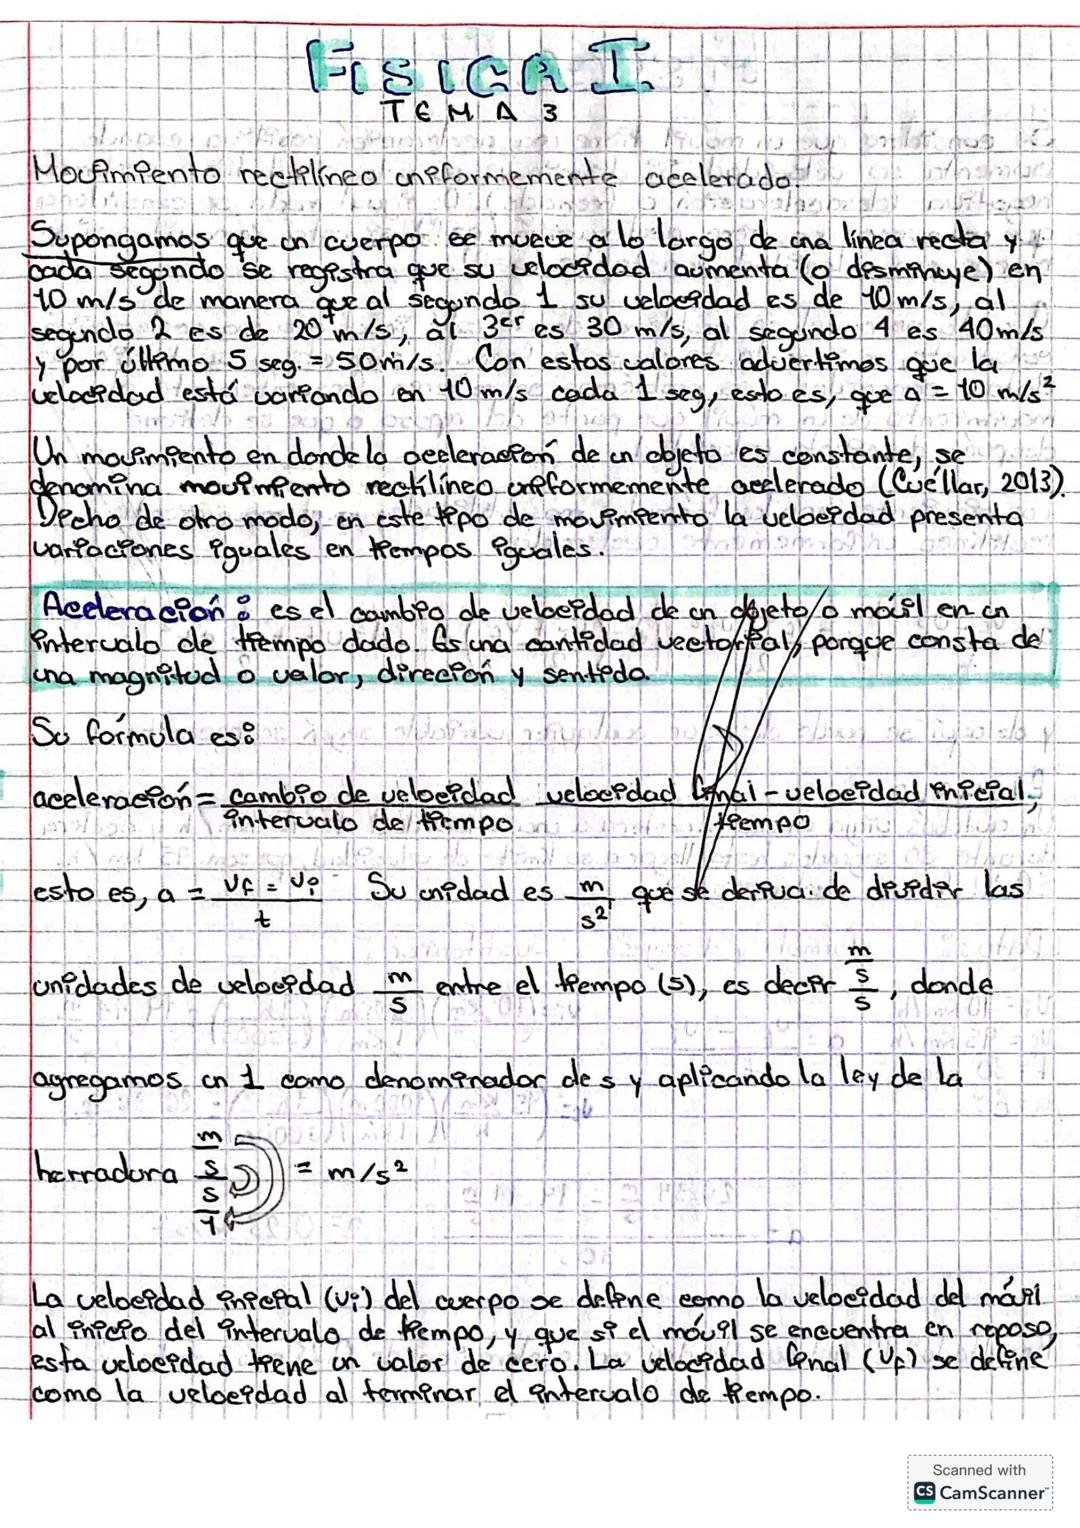 FISICA I
TEMA 3
Movimiento rectilíneo uniformemente acelerado.
Supongamos que un cuerpo se mueve a lo largo de una línea recta y
cada segundo se registra que su velocidad aumenta (o disminuye) en
10 m/s de manera que al segundo 1 su velocidad es de 10 m/s, al
segundo 2 es de 20 m/s, al 3er es 30 m/s, al segundo 4 es 40 m/s
y por último 5 seg. = 50 m/s. Con estos valores advertimos que la
velocidad está variando en 10 m/s cada 1 seg, esto es, que a = 10 m/s²
Un movimiento en donde la aceleración de un objeto es constante, se
denomina movimiento rectilíneo uniformemente acelerado (Cuéllar, 2013).
Dicho de otro modo, en este tipo de movimiento la velocidad presenta
variaciones iguales en tiempos iguales.
Aceleración: es el cambio de velocidad de un objeto/o móvil en un
intervalo de tiempo dado. Es una cantidad vectorial, porque consta de
una magnitud o valor, direción y sentido.
Su fórmula es:
aceleración = cambio de velocidad velocidad final - velocidad inicial,
intervalo de tiempo tiempo
esto es, a = vf = vi Su unidad es m que se deriva de dividir las
t s²
unidades de velocidad m/s entre el tiempo (s), es decir m/s/s, donde
agregamos un 1 como denominador de s y aplicando la ley de la
herradura m/s/s/1 = m/s²
La velocidad inicial (vi) del cuerpo se define como la velocidad del móvil
al inicio del intervalo de tiempo, y que si el móvil se encuentra en reposo,
esta velocidad tiene un valor de cero. La velocidad final (vf) se define
como la velocidad al terminar el intervalo de tiempo.
Scanned with
CS CamScanner